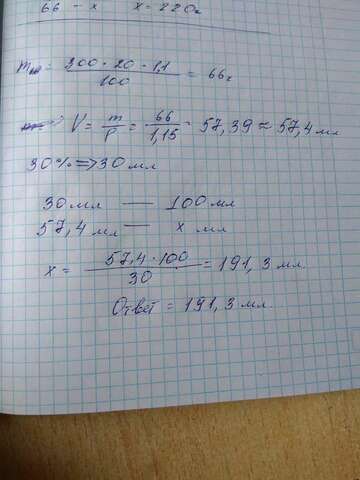 66 – x   x = 220г
= 300 · 20 · 1,1 / 100 = 66г
V = m/ρ = 66/1,15 = 57,39 ≈ 57,4 мл
30% => 30 мл
30 мл — 100 мл
57,4 мл — x мл
x = 57,4 · 100 / 30 = 191,3 мл.
Ответ = 191,3 мл.